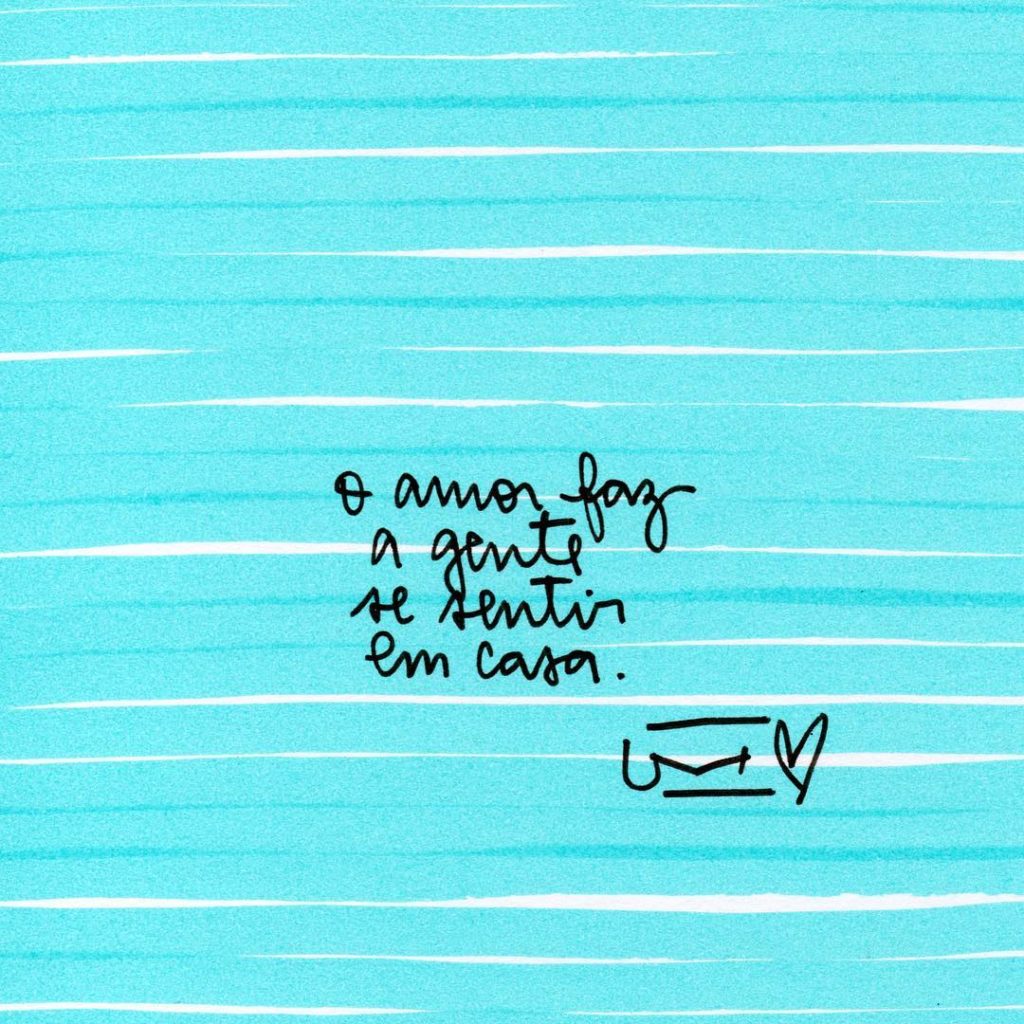 o amor faz
a gente
se sentir
em casa.